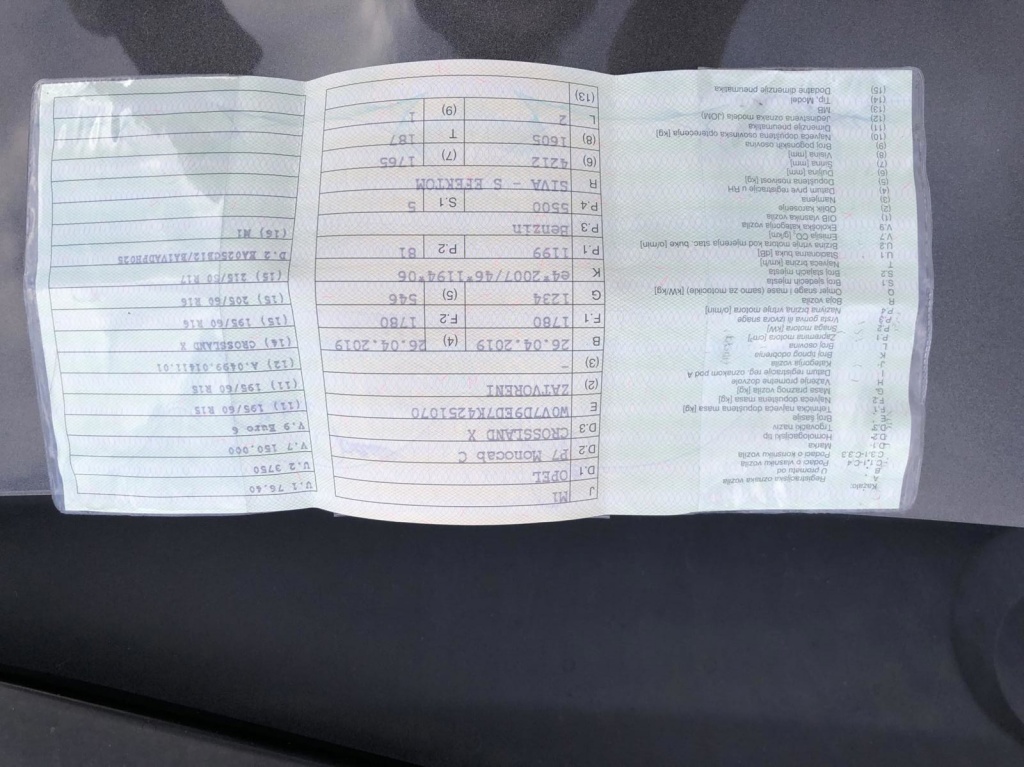 Kazalo:
A Registracijska oznaka vozila
B U prometu od
C.1.1-C.4 Podaci o vlasniku vozila
C.3.1-C.3.3 Podaci o korisniku vozila
D.1 Marka
D.2 Homologacijski tip
D.3 Trgovački naziv
E Broj šasije
F.1 Tehnička najveća dopuštena masa [kg]
F.2 Najveća dopuštena masa [kg]
G Masa praznog vozila [kg]
H Važenje prometne dozvole
I Datum registracije reg. oznakom pod A
J Kategorija vozila
K Broj tipnog odobrenja
L Broj osovina
P.1 Zapremina motora [cm³]
P.2 Snaga motora [kW]
P.3 Vrsta goriva ili izvora snage
P.4 Nazivna brzina vrtnje motora [o/min]
R Boja vozila
Q Omjer snage i mase (samo za motocikle) [kW/kg]
S.1 Broj sjedećih mjesta
S.2 Broj stajaćih mjesta
T Najveća brzina [km/h]
U.1 Stacionarna buka [dB]
U.2 Brzina vrtnje motora kod mjerenja stac. buke [o/min]
V.7 Emisija CO₂ [g/km]
V.9 Ekološka kategorija vozila
(1) OIB vlasnika vozila
(2) Oblik karoserije
(3) Namjena
(4) Datum prve registracije u RH
(5) Dopuštena nosivost [kg]
(6) Duljina [mm]
(7) Širina [mm]
(8) Visina [mm]
(9) Broj pogonskih osovina
(10) Najveća dopuštena osovinska opterećenja [kg]
(11) Dimenzije pneumatika
(12) Jedinstvena oznaka modela (JOM)
(13) MB
(14) Tip, Model
(15) Dodatne dimenzije pneumatika
J M1
D.1 OPEL
D.2 P7 Monocab C
D.3 CROSSLAND X
E W0V7D9EDYK4251070
(2) ZATVORENI
(3) -
B 26.04.2019 (4) 26.04.2019
F.1 1780 F.2 1780
G 1234 (5) 546
K e4*2007/46*1194*06
P.1 1199 P.2 81
P.3 Benzin
P.4 5500 S.1 5
R SIVA - S EFEKTOM
(6) 4212 (7) 1765
(8) 1605 T 187
L 2 (9) 1
(13)
U.1 76.40
U.2 3750
V.7 150.000
V.9 Euro 6
(11) 195/60 R15
(11) 195/60 R15
(12) A.0499.01411.01
(14) CROSSLAND X
(15) 195/60 R16
(15) 205/60 R16
(15) 215/50 R17
(16) M1